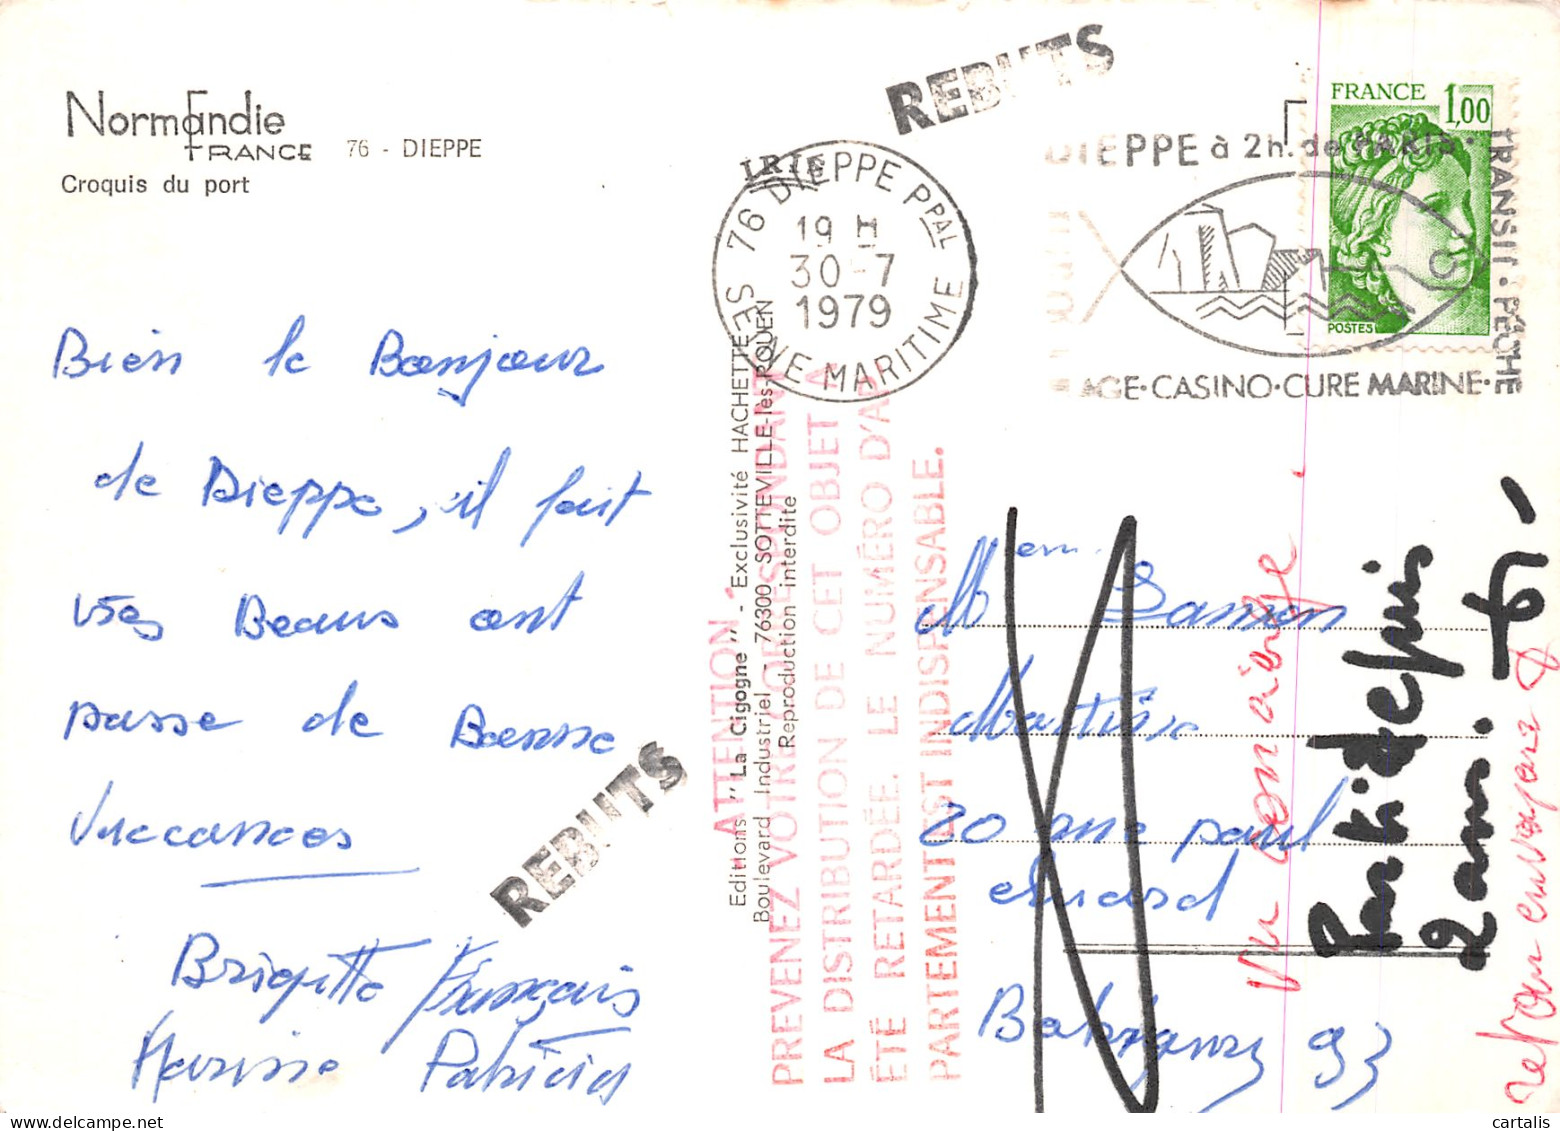 Normandie
FRANCE
76 - DIEPPE
Croquis du port
REBUTS
76 DIEPPE PPAL
19 H
30-7
1979
SEINE MARITIME
DIEPPE à 2h. de PARIS.
TRANSIT. PECHE
AGE.CASINO.CURE MARINE.
FRANCE 1,00
POSTES
Bien le Bonjour
de Dieppe, il fait
Beaus ont
passe de Bonne
Vaccances
Brigitte François
Patricia
REBUTS
Editions "La Cigogne" - Exclusivité HACHETTE
Boulevard Industriel - 76300 SOTTEVILLE-les-ROUEN
Reproduction interdite
ATTENTION.
PREVENEZ VOTRE CORRESPONDANT
LA DISTRIBUTION DE CET OBJET A
ÉTÉ RETARDÉE. LE NUMÉRO D'AP
PARTEMENT EST INDISPENSABLE.
Mem
Martine
20 rue paul
eluard
Bobigny 93
Parti depuis
2 ans.
retour envoyeur
cartalis